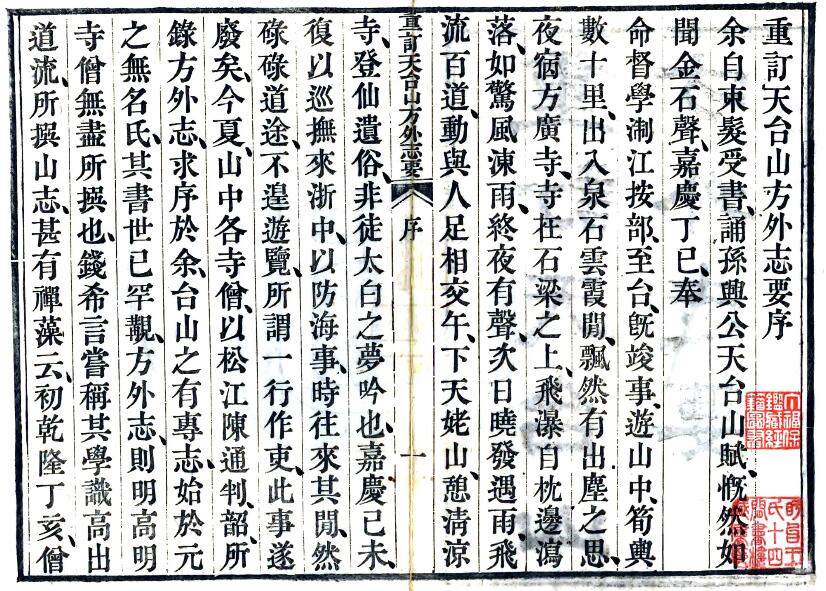 重訂天台山方外志要序
余自束髮受書、誦孫興公天台山賦、慨然如
聞金石聲、嘉慶丁巳、奉
命督學浙江按部至台、旣竣事、遊山中、筍輿
數十里、出入泉石雲霞閒、飄然有出塵之思、
夜宿方廣寺、寺在石梁之上、飛瀑自枕邊瀉
落、如驚風涷雨、終夜有聲、次日曉發遇雨、飛
流百道、動與人足相交午、下天姥山、憩淸涼
重訂天台山方外志要 序 一
寺、登仙遺俗、非徒太白之夢吟也、嘉慶己未、
復以巡撫來浙中、以防海事、時往來其閒、然
碌碌道途、不遑遊覽、所謂一行作吏、此事遂
廢矣、今夏、山中各寺僧、以松江陳通判韶、所
錄方外志、求序於余、台山之有專志、始於元
之無名氏、其書世已罕覯、方外志、則明高明
寺僧無盡所撰也、錢希言嘗稱其學識高出
道流、所撰山志、甚有禪藻云、初乾隆丁亥、僧